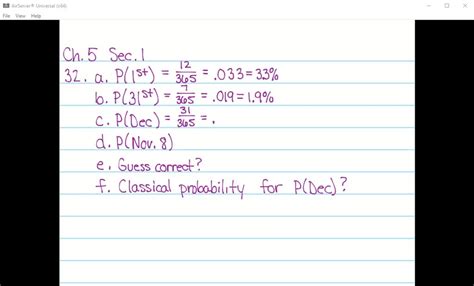 AirServer® Universal (x64)
File View Help
Ch. 5 Sec. 1
32. a. P(1st) = 12/365 = .033 = 33%
b. P(31st) = 7/365 = .019 = 1.9%
c. P(Dec) = 31/365 = .
d. P(Nov. 8)
e. Guess correct?
f. Classical probability for P(Dec)?